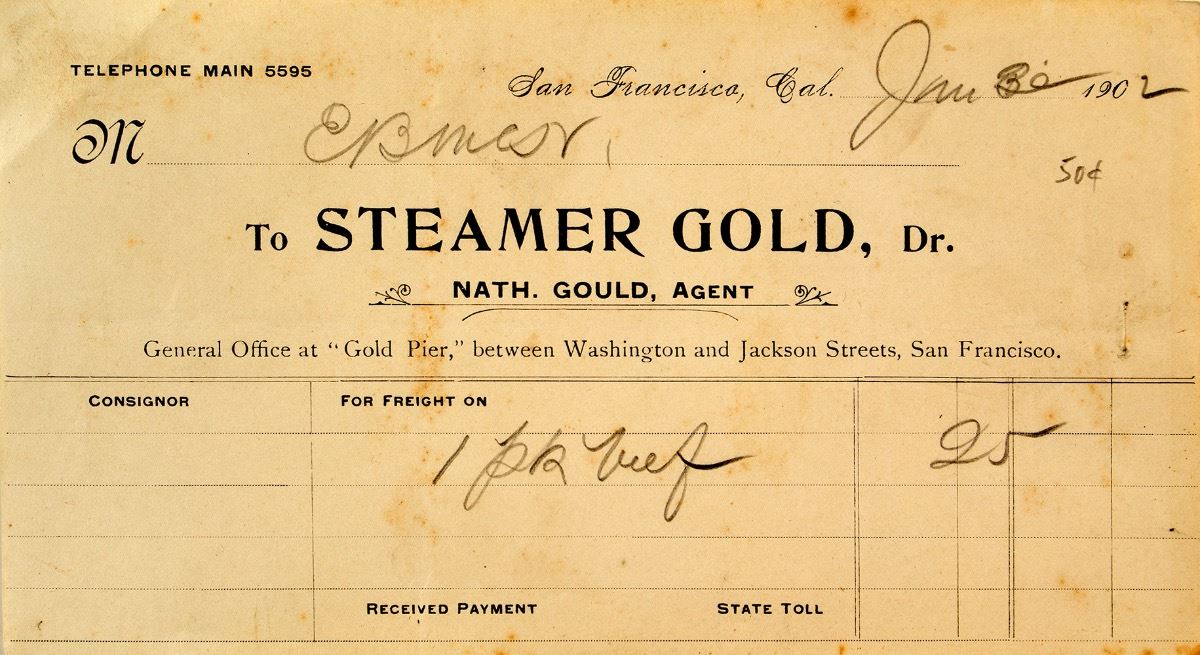 TELEPHONE MAIN 5595
San Francisco, Cal. Jan 30 1902
M
50¢
To STEAMER GOLD, Dr.
NATH. GOULD, AGENT
General Office at "Gold Pier," between Washington and Jackson Streets, San Francisco.
CONSIGNOR FOR FREIGHT ON
1 pk beef 25
RECEIVED PAYMENT STATE TOLL